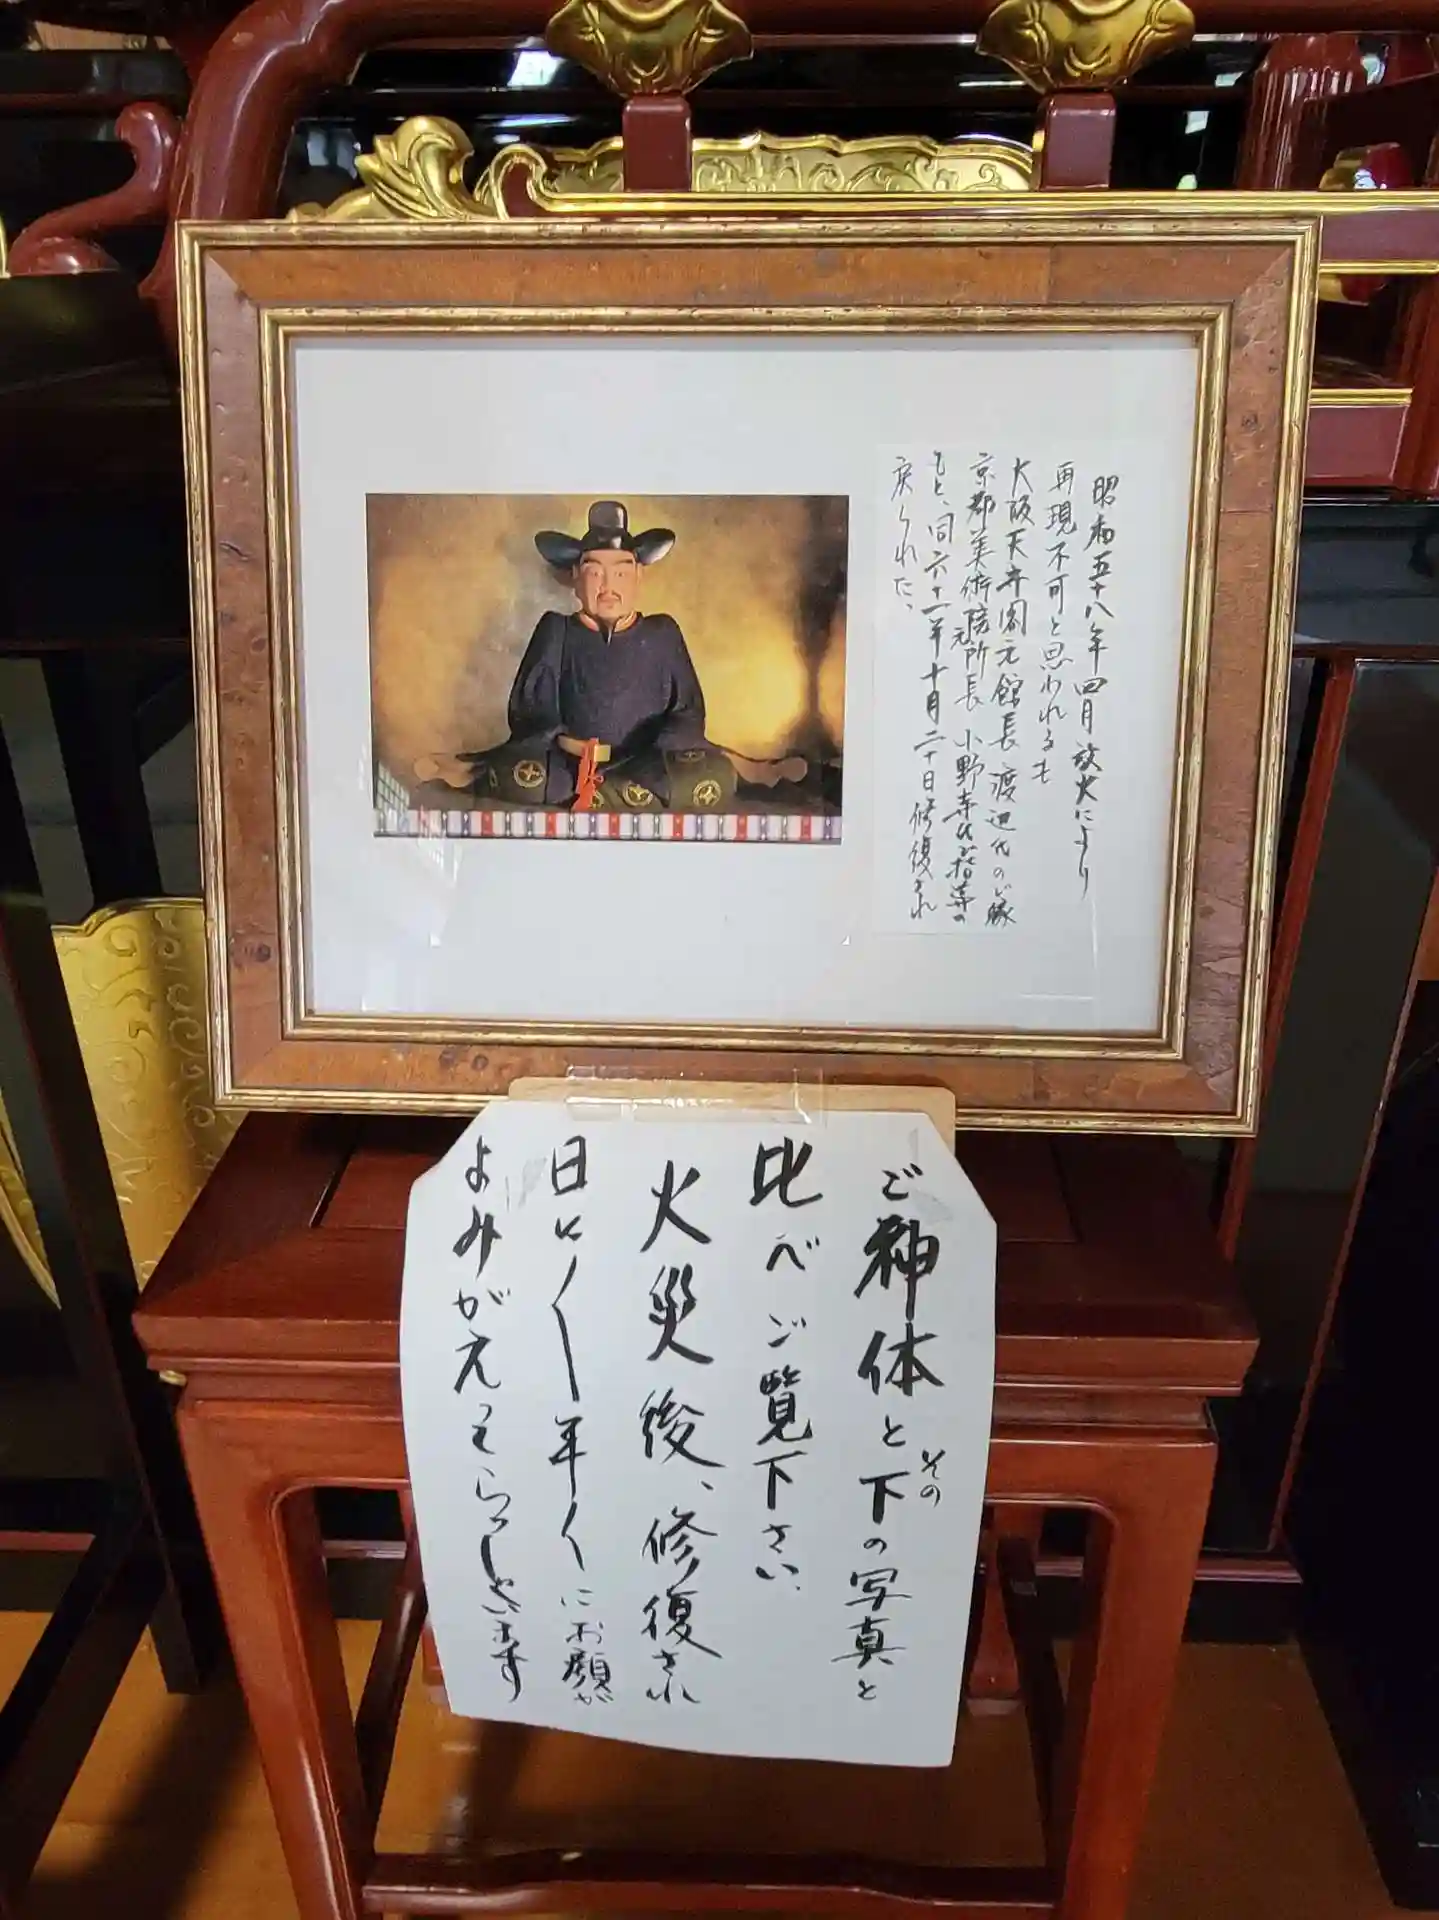 昭和五十八年四月放火により
再現不可と思われるも
大阪天守閣元館長渡辺氏のご縁
京都美術院元所長 小野寺氏ご指導の
もと、同六十一年十月二十日修復され
戻られた、
ご神体とその下の写真と
比べご覧下さい、
火災後、修復され
日に〳〵年〳〵にお顔が
よみがえってらっしゃいます